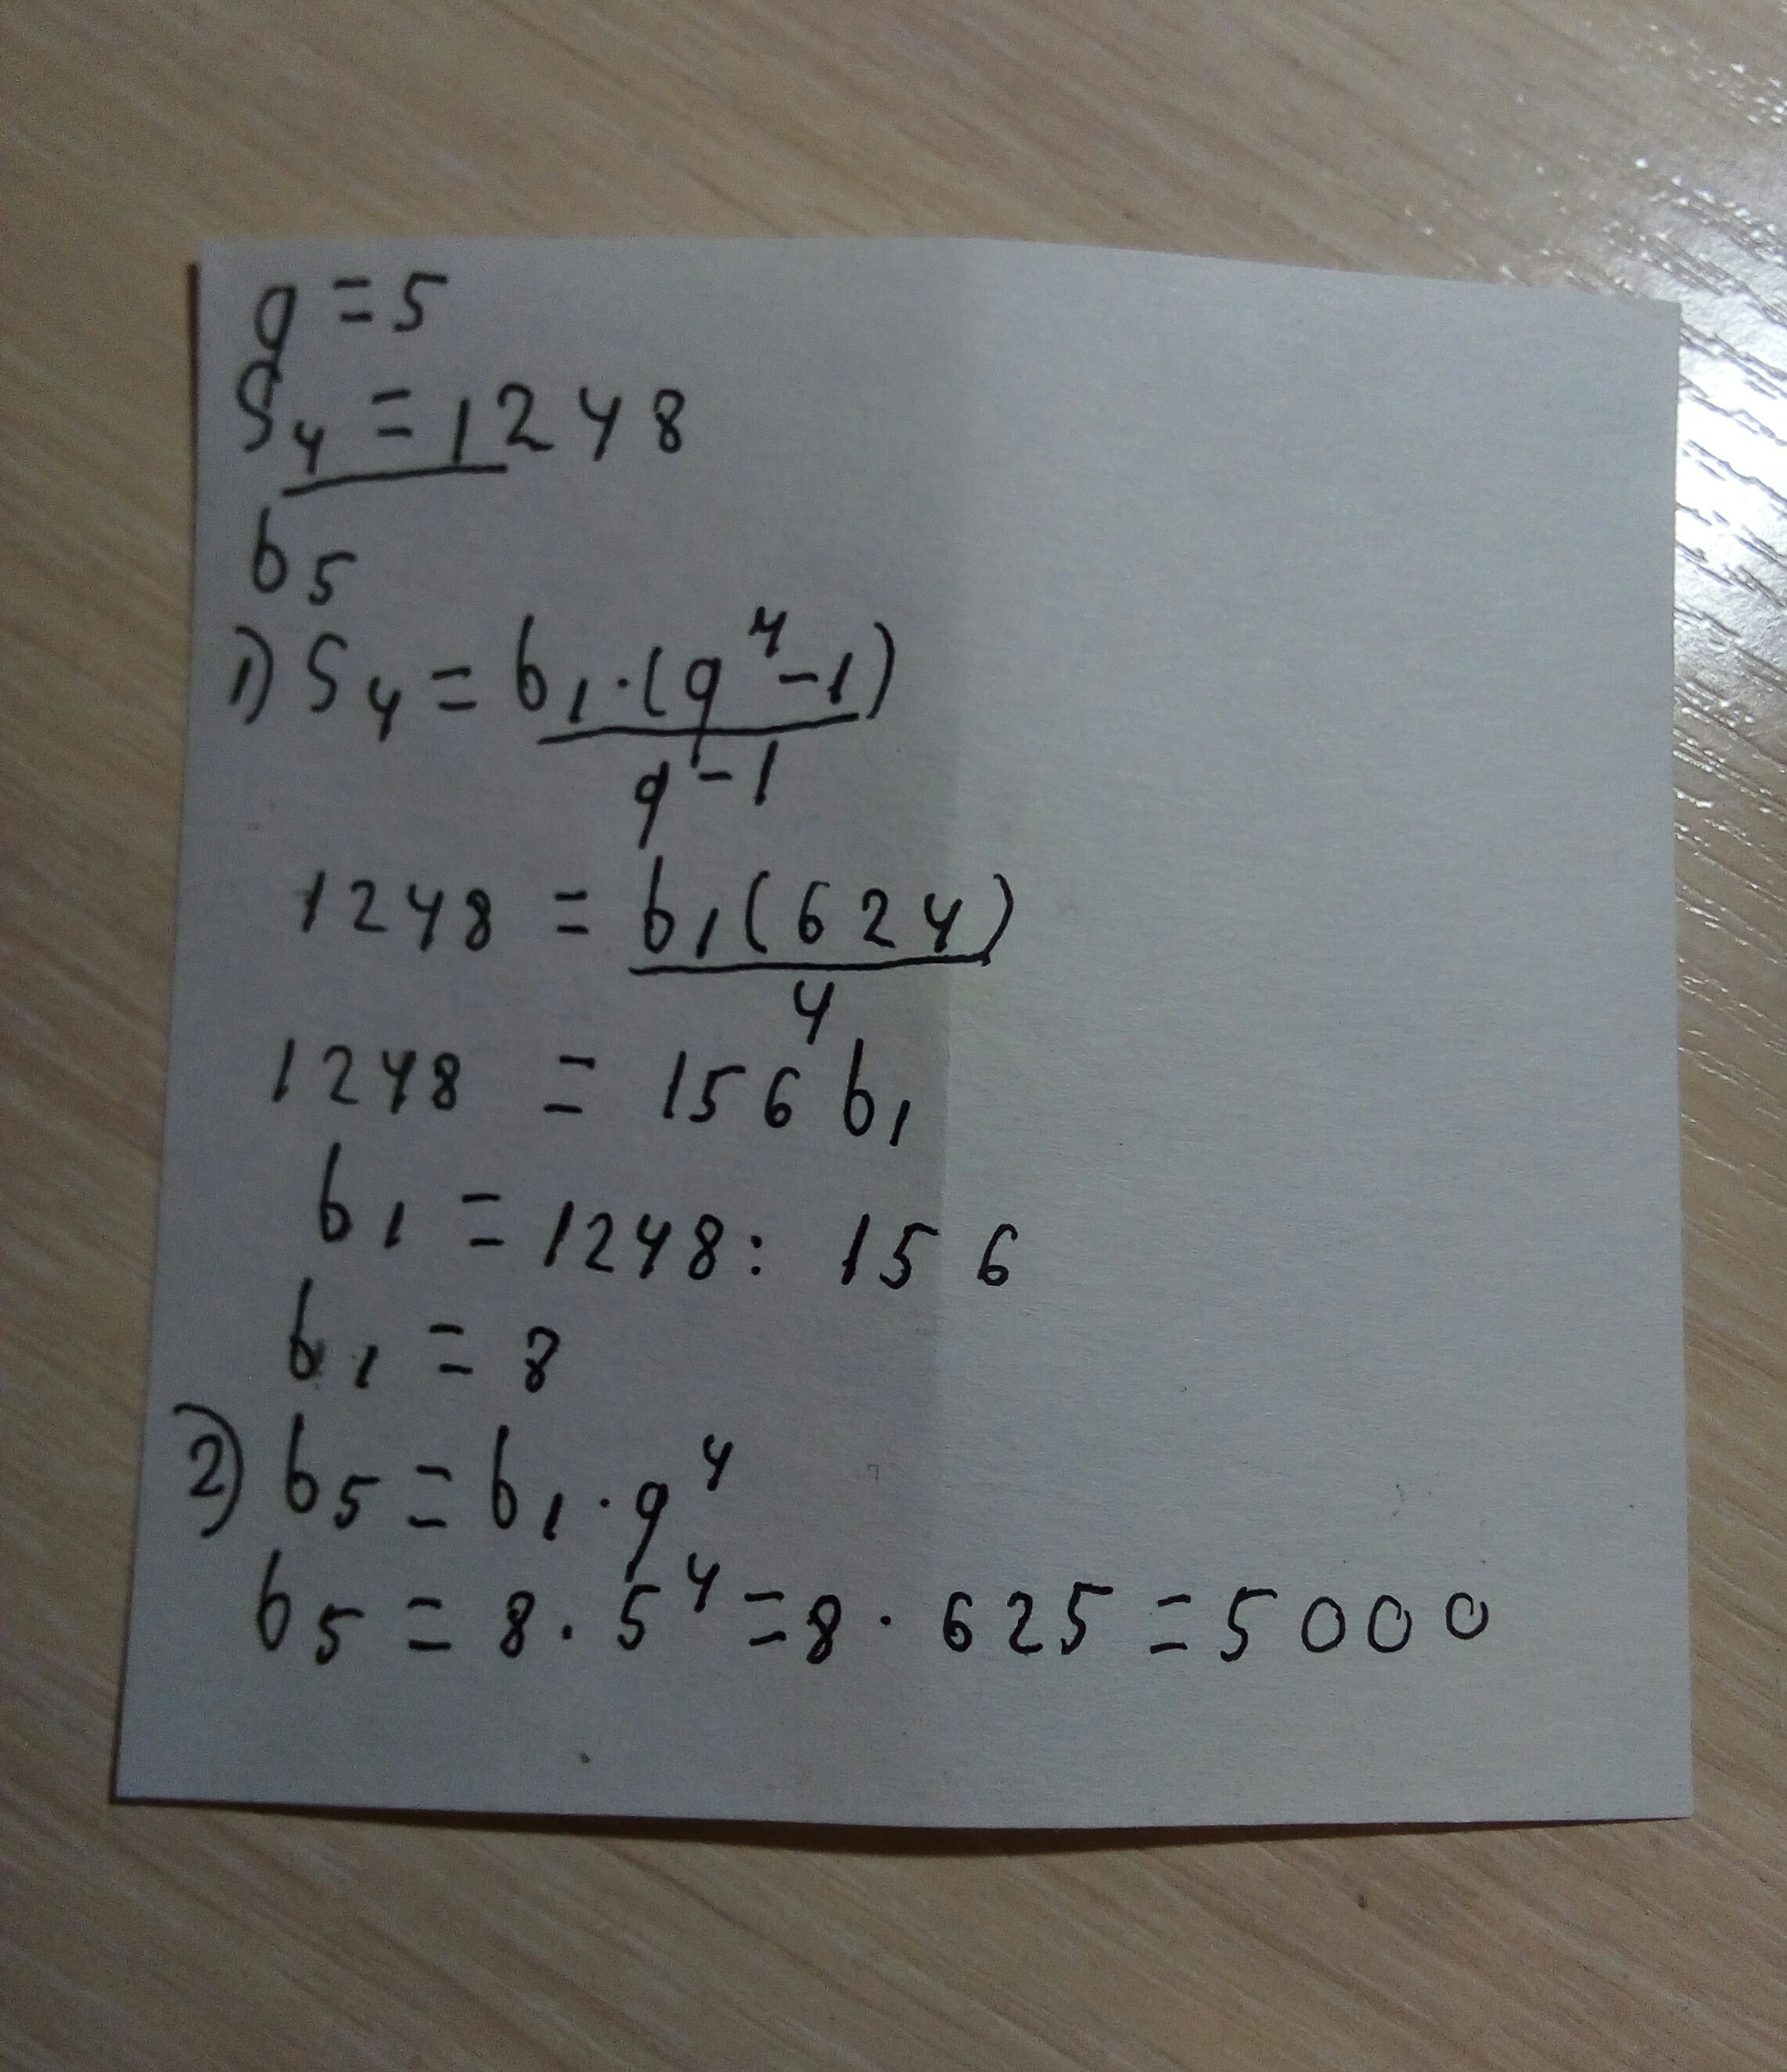 q = 5
S₄ = 1248
b₅
1) S₄ = b₁·(q⁴-1)
q-1
1248 = b₁(624)
4
1248 = 156 b₁
b₁ = 1248 : 156
b₁ = 8
2) b₅ = b₁·q⁴
b₅ = 8·5⁴ = 8·625 = 5000